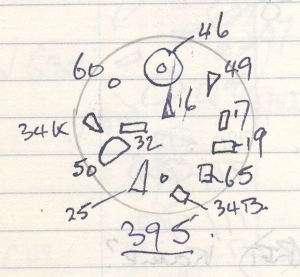 46
60
49
16
17
34K
32
19
50
65
25
34B
395.